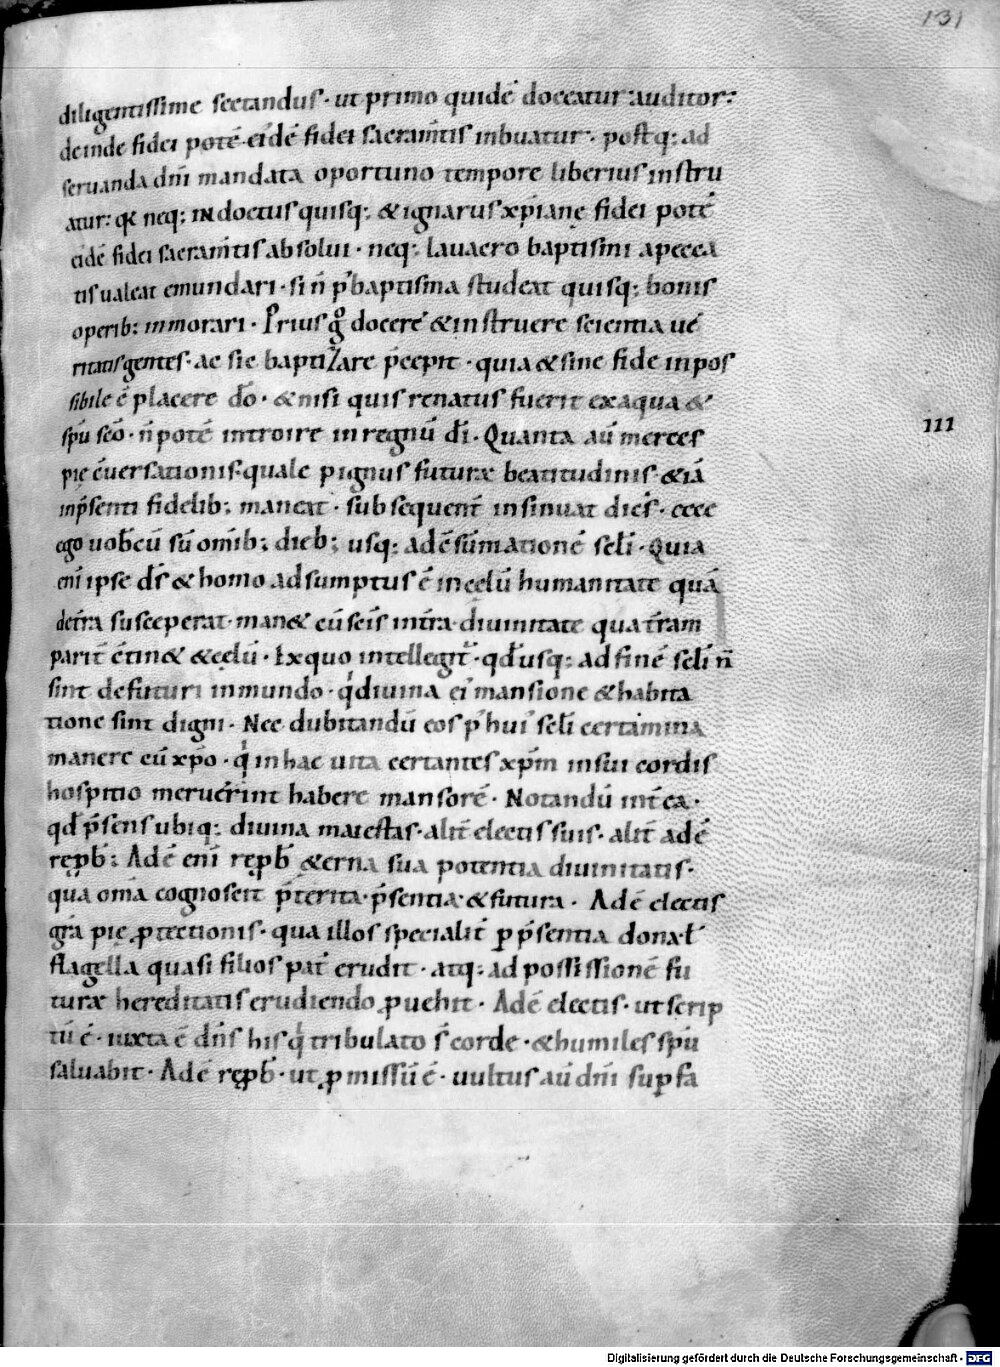 131
diligentissime sectandus · ut primo quidē doceatur auditor:
deinde fidei potē · eidē fidei sacram̄tis inbuatur · postq; ad
seruanda dn̄i mandata oportuno tempore liberius instru
atur: qa neq; indoctus quisq; & ignarus xp̄iane fidei potē
eidē fidei sacram̄tis absolui · neq; lauacro baptismi a pecca
tis ualeat emundari · si n̄ p̄ baptisma studeat quisq; bonis
operib; inmorari · Prius gͦ docere & instruere scientia ue
ritatis gentes · ac sic baptizare p̄cepit · quia & sine fide inpos
sibile ē placere dō · & nisi quis renatus fuerit ex aqua &
sp̄u scō · n̄ potē introire in regnū dī · Quanta aū merces
111
pię c̄uersationis · quale pignus futuræ beatitudinis · & iā
in p̄senti fidelib; maneat · subsequent̄ insinuat dicēs · ecce
ego uob̄cū sū om̄ib; dieb; usq; ad c̄sūmationē sc̄li · Quia
eni ipse d̄s & homo adsumptus ē in cęlū humanitate quā
de t̄ra susceperat · man& cū sc̄is in t̄ra · diuinitate qua t̄ram
parit̄ c̄tin& & cęlū · Ex quo intellegit̄ · qd̄ usq; ad finē sc̄li n̄
sint defuturi in mundo · qͥ diuina ei mansione & habita
tione sint digni · Nec dubitandū eos p̄ huiͥ sc̄li certamina
manere cū xp̄o · qͥ in hac uita certantes xp̄m in sui cordis
hospitio meruer̄int habere mansorē · Notandū int̄ea ·
qd̄ p̄sens ubiq; diuina maiestas · alit̄ electis suis · alit̄ adē
rępb̄; Adē eni rępb̄ &erna sua potentia diuinitatis ·
qua om̄a cognoscit p̄terita · p̄sentia · & futura · Adē electis
gr̄a pię ꝓtectionis · qua illos specialit̄ ꝑ p̄sentia dona · ł
flagella quasi filios pat̄ erudit · atq; ad possissionē fu
turæ hereditatis erudiendo ꝓuehit · Adē electis · ut scrip
tū ē · iuxta ē dn̄s his qͥ tribulato s̄ corde · & humiles sp̄u
saluabit · Adē rępb̄ · ut ꝓmissū ē · uultus aū dn̄i suꝑ fa
Digitalisierung gefördert durch die Deutsche Forschungsgemeinschaft - DFG